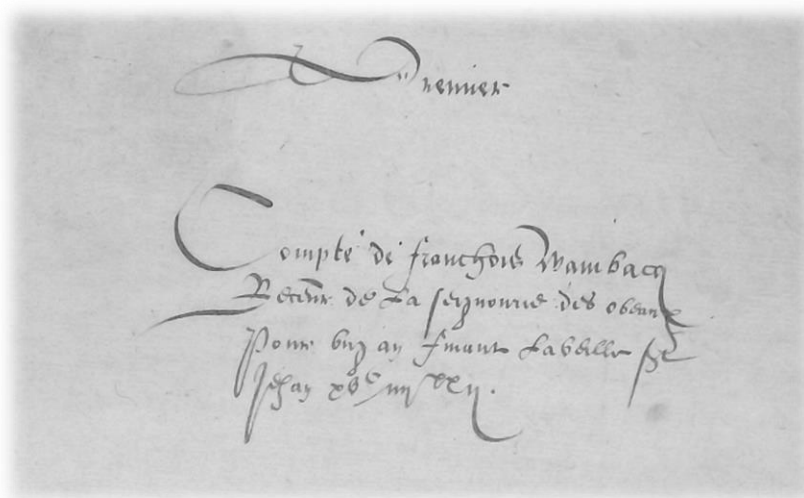 Premier
Compte de franchois Wambacq
Recepur de La seignourie des obeaux
Pour ung an finant La veille St
Jehan xvc iiijxx ij.